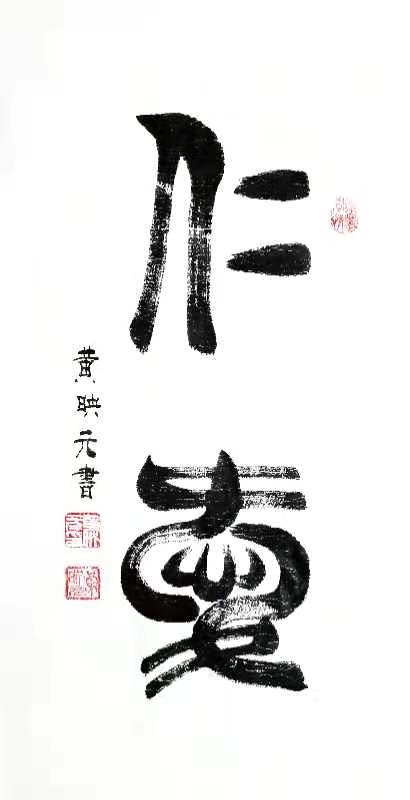 仁愛
黄映元書